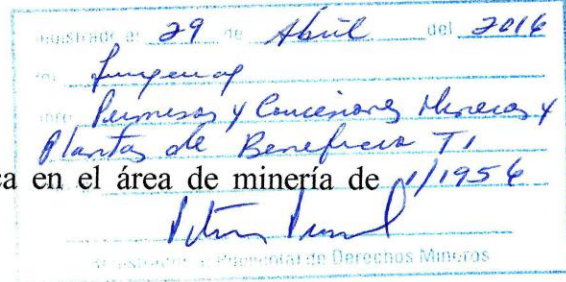 registrado al 29 de Abril del 2016
Permisos y Concesiones Mineras y
Plantas de Beneficio T1
ca en el área de minería de 1/1956
de Derechos Mineros